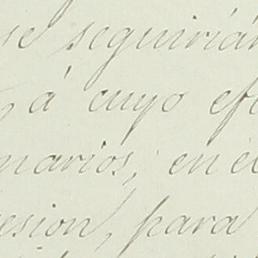 se seguirán
, á cuyo efe
narios, en el
esion, para